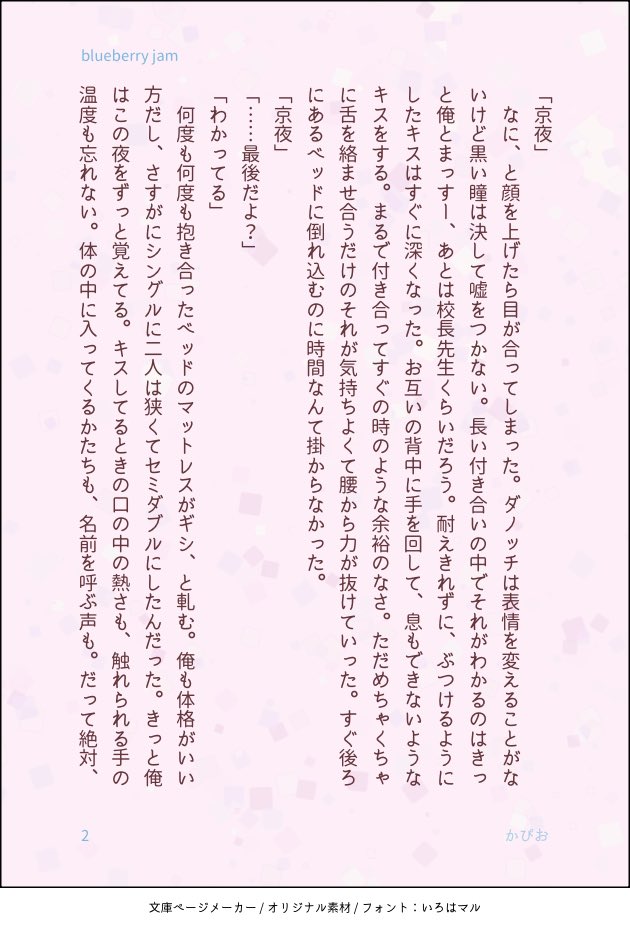 blueberry jam
「京夜」
なに、と顔を上げたら目が合ってしまった。ダノッチは表情を変えることがな
いけど黒い瞳は決して嘘をつかない。長い付き合いの中でそれがわかるのはきっ
と俺とまっすー、あとは校長先生くらいだろう。耐えきれずに、ぶつけるように
したキスはすぐに深くなった。お互いの背中に手を回して、息もできないような
キスをする。まるで付き合ってすぐの時のような余裕のなさ。ただめちゃくちゃ
に舌を絡ませ合うだけのそれが気持ちよくて腰から力が抜けていった。すぐ後ろ
にあるベッドに倒れ込むのに時間なんて掛からなかった。
「京夜」
「……最後だよ?」
「わかってる」
何度も何度も抱き合ったベッドのマットレスがギシ、と軋む。俺も体格がいい
方だし、さすがにシングルに二人は狭くてセミダブルにしたんだった。きっと俺
はこの夜をずっと覚えてる。キスしてるときの口の中の熱さも、触れられる手の
温度も忘れない。体の中に入ってくるかたちも、名前を呼ぶ声も。だって絶対、
2
かぴお
文庫ページメーカー / オリジナル素材 / フォント：いろはマル